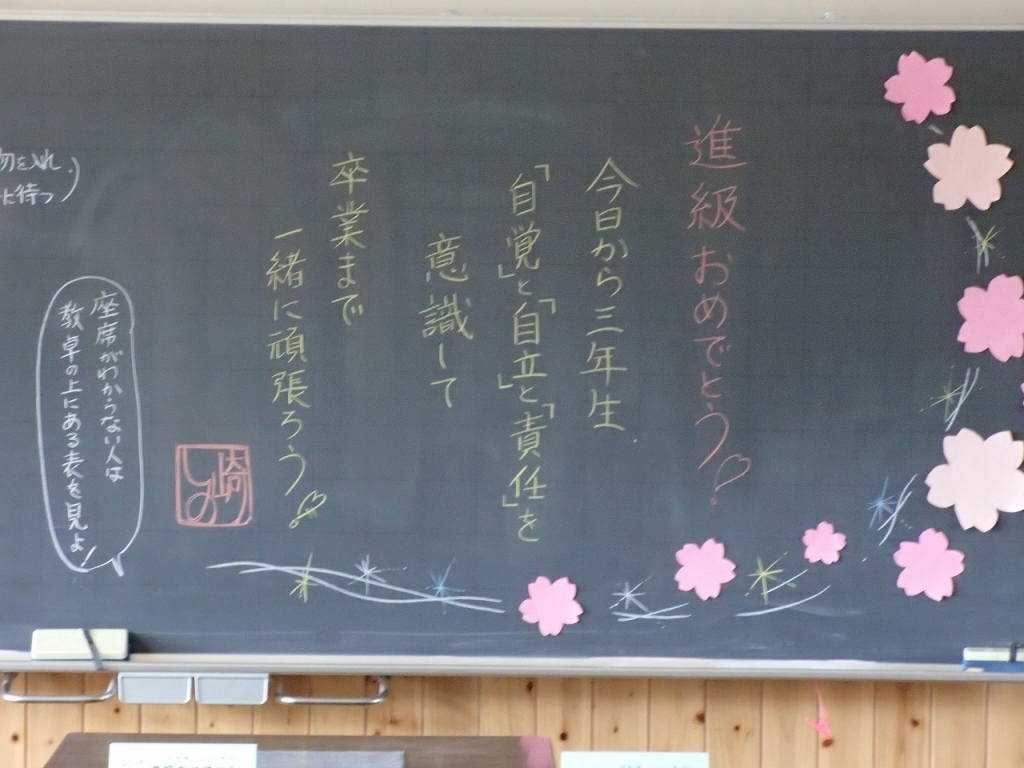 進級おめでとう！
今日から三年生.
「自覚」と「自立」と「責任」を
意識して
卒業まで
一緒に頑張ろう！
座席がわからない人は
教卓の上にある表を見よ！
物を入れ
待つ）